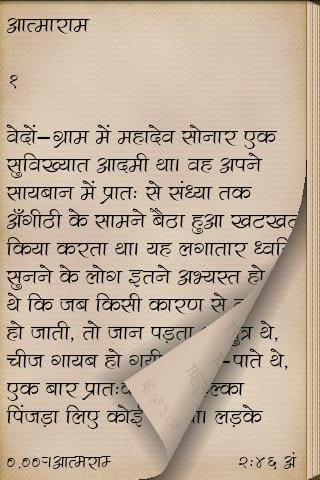 आत्माराम
१
वेदों–ग्राम में महादेव सोनार एक
सुविख्यात आदमी था। वह अपने
सायबान में प्रातः से संध्या तक
अँगीठी के सामने बैठा हुआ
किया करता था। यह लगातार
सुनने के लोग इतने अभ्यस्त हो
थे कि जब किसी कारण से
हो जाती, तो जान पड़ता थे,
चीज गायब हो –पाते थे,
एक बार
पिंजड़ा लिए कोई लड़के
०.००%आत्माराम २:४६ अं